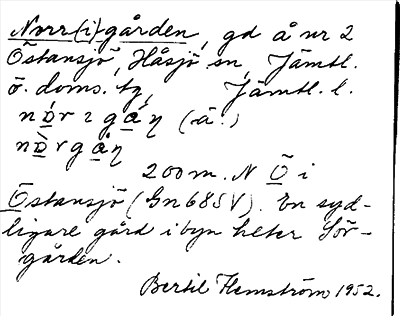 Norr(i)gården, gd å nr 2
Östansjö, Håsjö sn, Jämtl.
ö. doms. tg, Jämtl. l.
nò̱r ı gå̱ŋ (-á.)
nò̱r gå̱ŋ
200 m. N Ö i
Östansjö (Gn 685 V). En syd-
ligare gård i byn heter Sör-
gården.
Bertil Flemström 1952.